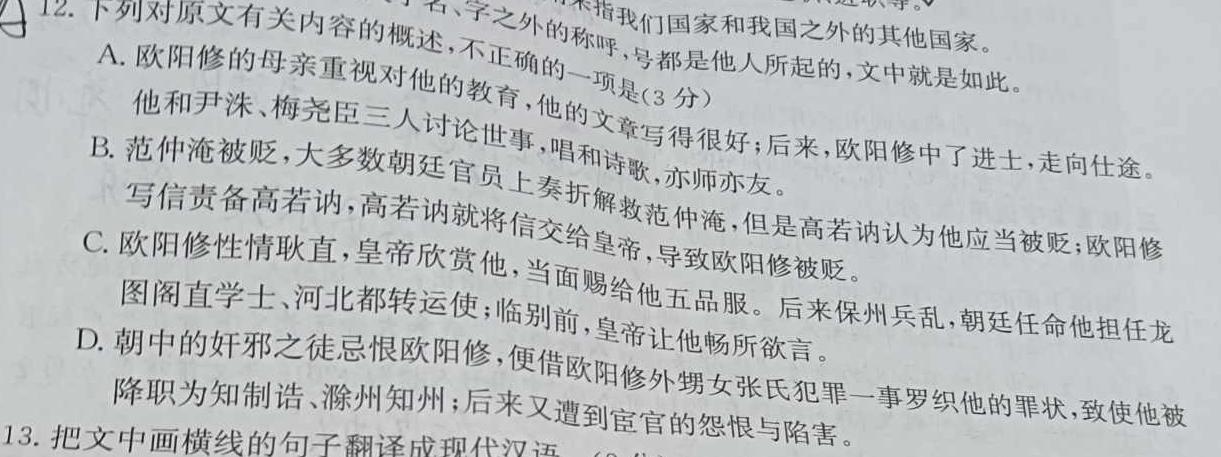 来指我们国家和我国之外的其他国家。
名、字之外的称呼,号都是他人所起的,文中就是如此。
12. 下列对原文有关内容的概述,不正确的一项是(3 分)
A. 欧阳修的母亲重视对他的教育,他的文章写得很好;后来,欧阳修中了进士,走向仕途。
他和尹洙、梅尧臣三人讨论世事,唱和诗歌,亦师亦友。
B. 范仲淹被贬,大多数朝廷官员上奏折解救范仲淹,但是高若讷认为他应当被贬;欧阳修
写信责备高若讷,高若讷就将信交给皇帝,导致欧阳修被贬。
C. 欧阳修性情耿直,皇帝欣赏他,当面赐给他五品服。后来保州兵乱,朝廷任命他担任龙
图阁直学士、河北都转运使;临别前,皇帝让他畅所欲言。
D. 朝中的奸邪之徒忌恨欧阳修,便借欧阳修外甥女张氏犯罪一事罗织他的罪状,致使他被
降职为知制诰、滁州知州;后来又遭到宦官的怨恨与陷害。
13. 把文中画横线的句子翻译成现代汉语